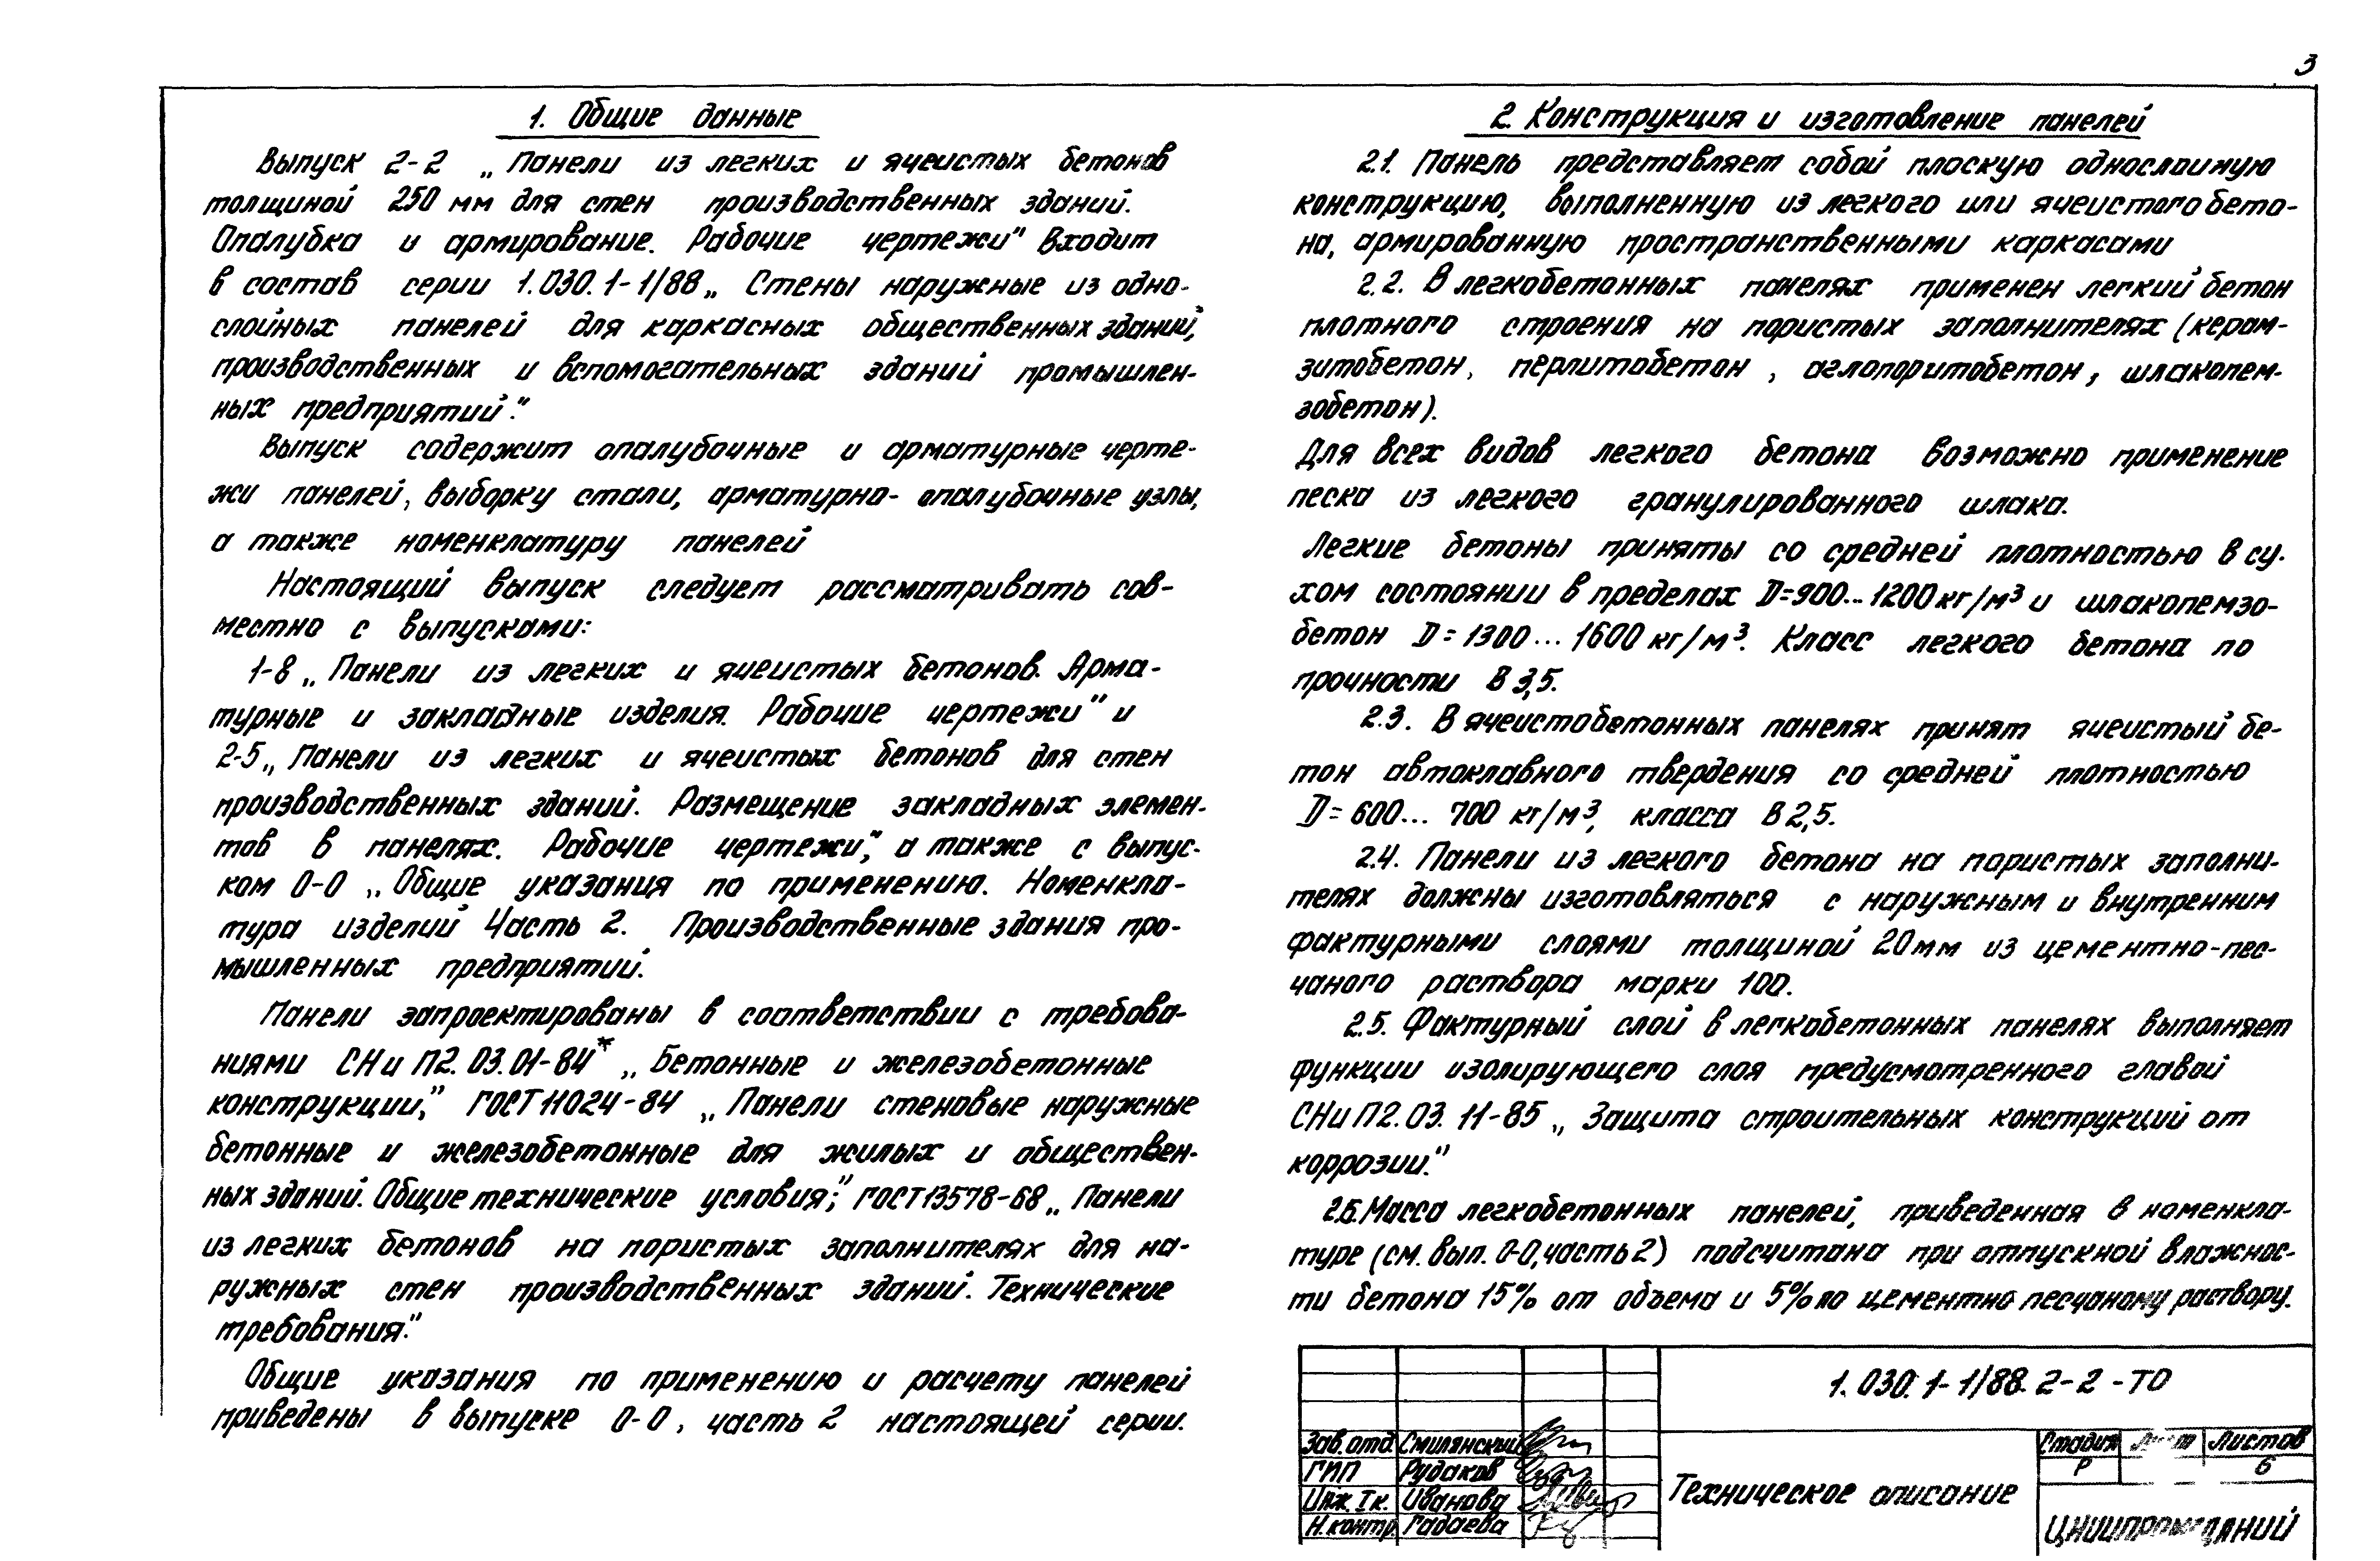 3
1. Общие данные
Выпуск 2-2 „Панели из легких и ячеистых бетонов
толщиной 250 мм для стен производственных зданий.
Опалубка и армирование. Рабочие чертежи" входит
в состав серии 1.030.1-1/88 „Стены наружные из одно-
слойных панелей для каркасных общественных зданий,
производственных и вспомогательных зданий промышлен-
ных предприятий".
Выпуск содержит опалубочные и арматурные черте-
жи панелей, выборку стали, арматурно-опалубочные узлы,
а также номенклатуру панелей
Настоящий выпуск следует рассматривать сов-
местно с выпусками:
1-8 „Панели из легких и ячеистых бетонов. Арма-
турные и закладные изделия. Рабочие чертежи" и
2-5 „Панели из легких и ячеистых бетонов для стен
производственных зданий. Размещение закладных элемен-
тов в панелях. Рабочие чертежи", а также с выпус-
ком 0-0 „Общие указания по применению. Номенкла-
тура изделий Часть 2. Производственные здания про-
мышленных предприятий.
Панели запроектированы в соответствии с требова-
ниями СНиП 2.03.01-84* „Бетонные и железобетонные
конструкции", ГОСТ 11024-84 „Панели стеновые наружные
бетонные и железобетонные для жилых и обществен-
ных зданий. Общие технические условия"; ГОСТ 13578-68 „Панели
из легких бетонов на пористых заполнителях для на-
ружных стен производственных зданий. Технические
требования."
Общие указания по применению и расчету панелей
приведены в выпуске 0-0, часть 2 настоящей серии.
2. Конструкция и изготовление панелей
2.1. Панель представляет собой плоскую однослойную
конструкцию, выполненную из легкого или ячеистого бето-
на, армированную пространственными каркасами
2.2. В легкобетонных панелях применен легкий бетон
плотного строения на пористых заполнителях (керам-
зитобетон, перлитобетон, аглопоритобетон, шлакопем-
зобетон).
Для всех видов легкого бетона возможно применение
песка из легкого гранулированного шлака.
Легкие бетоны приняты со средней плотностью в су-
хом состоянии в пределах D=900...1200 кг/м³ и шлакопемзо-
бетон D=1300...1600 кг/м³. Класс легкого бетона по
прочности В 3,5.
2.3. В ячеистобетонных панелях принят ячеистый бе-
тон автоклавного твердения со средней плотностью
D=600... 700 кг/м³, класса В 2,5.
2.4. Панели из легкого бетона на пористых заполни-
телях должны изготовляться с наружным и внутренним
фактурными слоями толщиной 20 мм из цементно-пес-
чаного раствора марки 100.
2.5. Фактурный слой в легкобетонных панелях выполняет
функции изолирующего слоя предусмотренного главой
СНиП 2.03.11-85 „Защита строительных конструкций от
коррозии."
2.6. Масса легкобетонных панелей, приведенная в номенкла-
туре (см. вып. 0-0, часть 2) подсчитана при отпускной влажнос-
ти бетона 15% от объема и 5% по цементно песчаному раствору.
1.030.1-1/88.2-2-ТО
Зав. отд. Смилянский
ГИП Рудаков
Инж. Iк. Иванова
Н. контр. Гадаева
Техническое описание
Стадия Лист Листов
Р 6
ЦНИИПРОМЗДАНИЙ